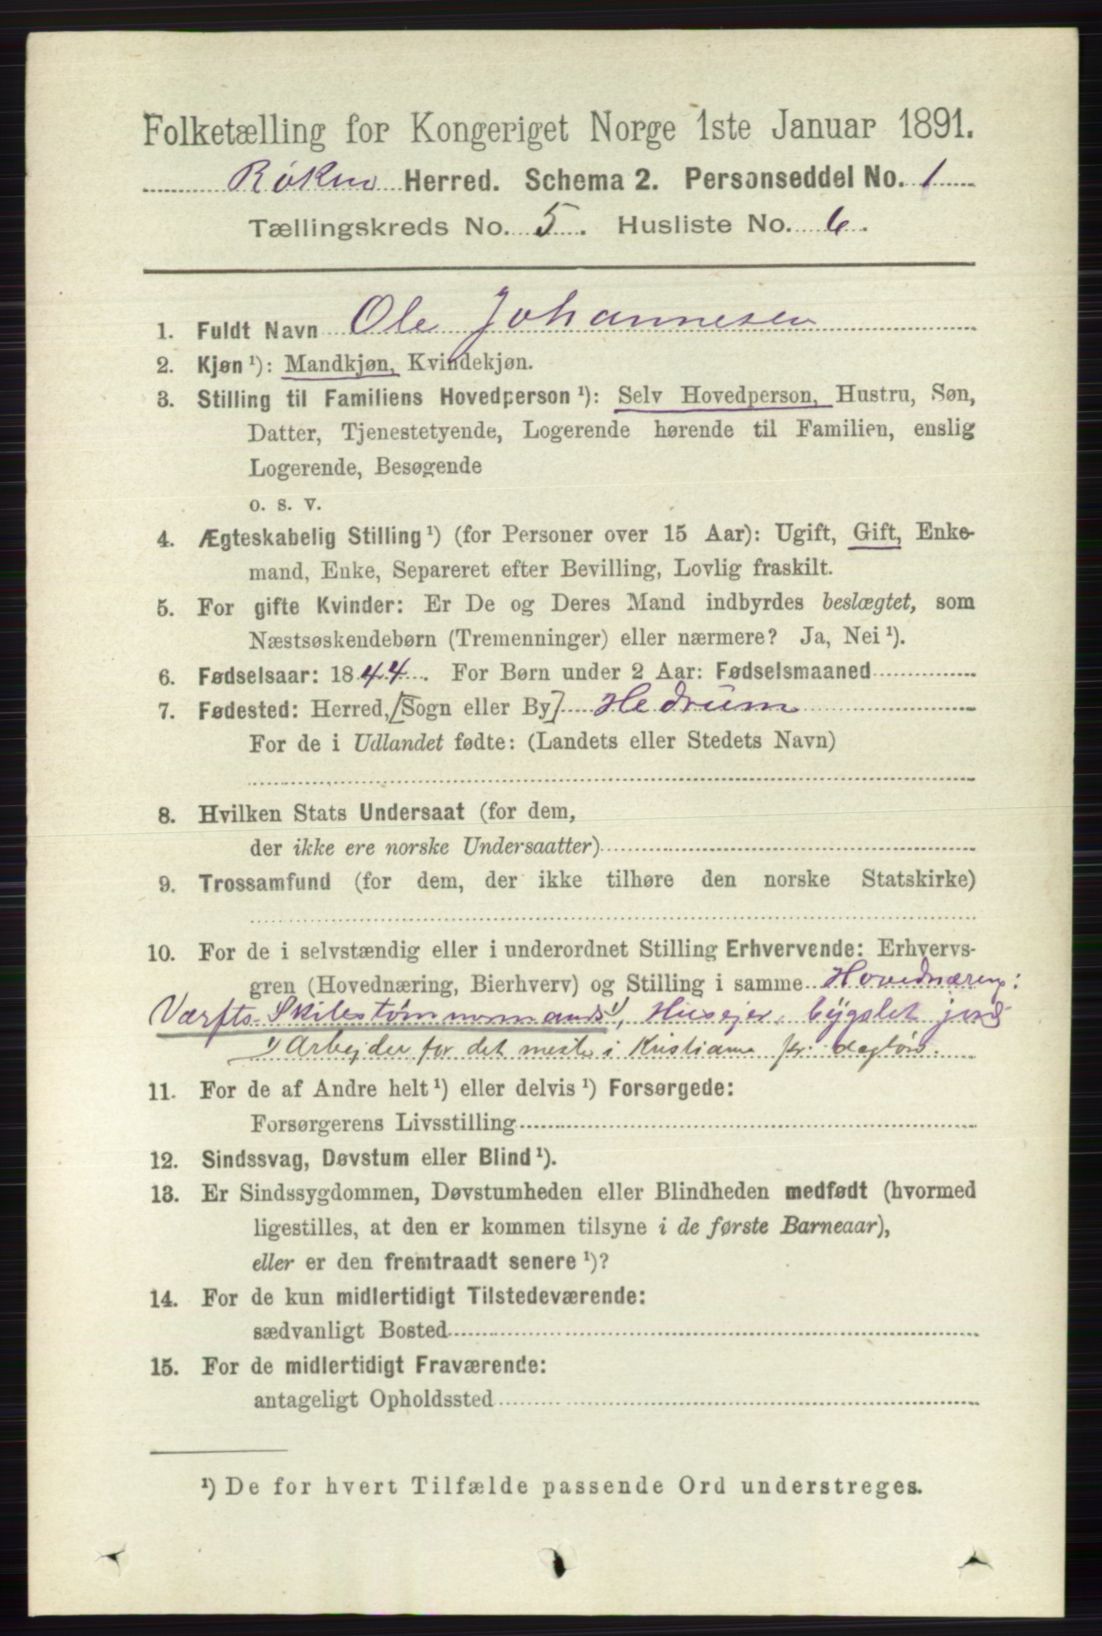 Folketælling for Kongeriget Norge 1ste Januar 1891.
Røken Herred. Schema 2. Personseddel No. 1
Tællingskreds No. 5. Husliste No. 6.
1. Fuldt Navn Ole Johannesen
2. Kjøn ¹): Mandkjøn, Kvindekjøn.
3. Stilling til Familiens Hovedperson ¹): Selv Hovedperson, Hustru, Søn,
Datter, Tjenestetyende, Logerende hørende til Familien, enslig
Logerende, Besøgende
o. s. v.
4. Ægteskabelig Stilling ¹) (for Personer over 15 Aar): Ugift, Gift, Enke-
mand, Enke, Separeret efter Bevilling, Lovlig fraskilt.
5. For gifte Kvinder: Er De og Deres Mand indbyrdes beslægtet, som
Næstsøskendebørn (Tremenninger) eller nærmere? Ja, Nei ¹).
6. Fødselsaar: 1844. For Børn under 2 Aar: Fødselsmaaned
7. Fødested: Herred, [Sogn eller By] Hedrum
For de i Udlandet fødte: (Landets eller Stedets Navn)
8. Hvilken Stats Undersaat (for dem,
der ikke ere norske Undersaatter)
9. Trossamfund (for dem, der ikke tilhøre den norske Statskirke)
10. For de i selvstændig eller i underordnet Stilling Erhvervende: Erhvervs-
gren (Hovednæring, Bierhverv) og Stilling i samme Hovednæring:
Værfts-Skibstømmermand ¹), Husejer, bygslet jord
¹) Arbejder for det meste i Kristiania pr. dagløn.
11. For de af Andre helt ¹) eller delvis ¹) Forsørgede:
Forsørgerens Livsstilling
12. Sindssvag, Døvstum eller Blind ¹).
13. Er Sindssygdommen, Døvstumheden eller Blindheden medfødt (hvormed
ligestilles, at den er kommen tilsyne i de første Barneaar),
eller er den fremtraadt senere ¹)?
14. For de kun midlertidigt Tilstedeværende:
sædvanligt Bosted
15. For de midlertidigt Fraværende:
antageligt Opholdssted
¹) De for hvert Tilfælde passende Ord understreges.